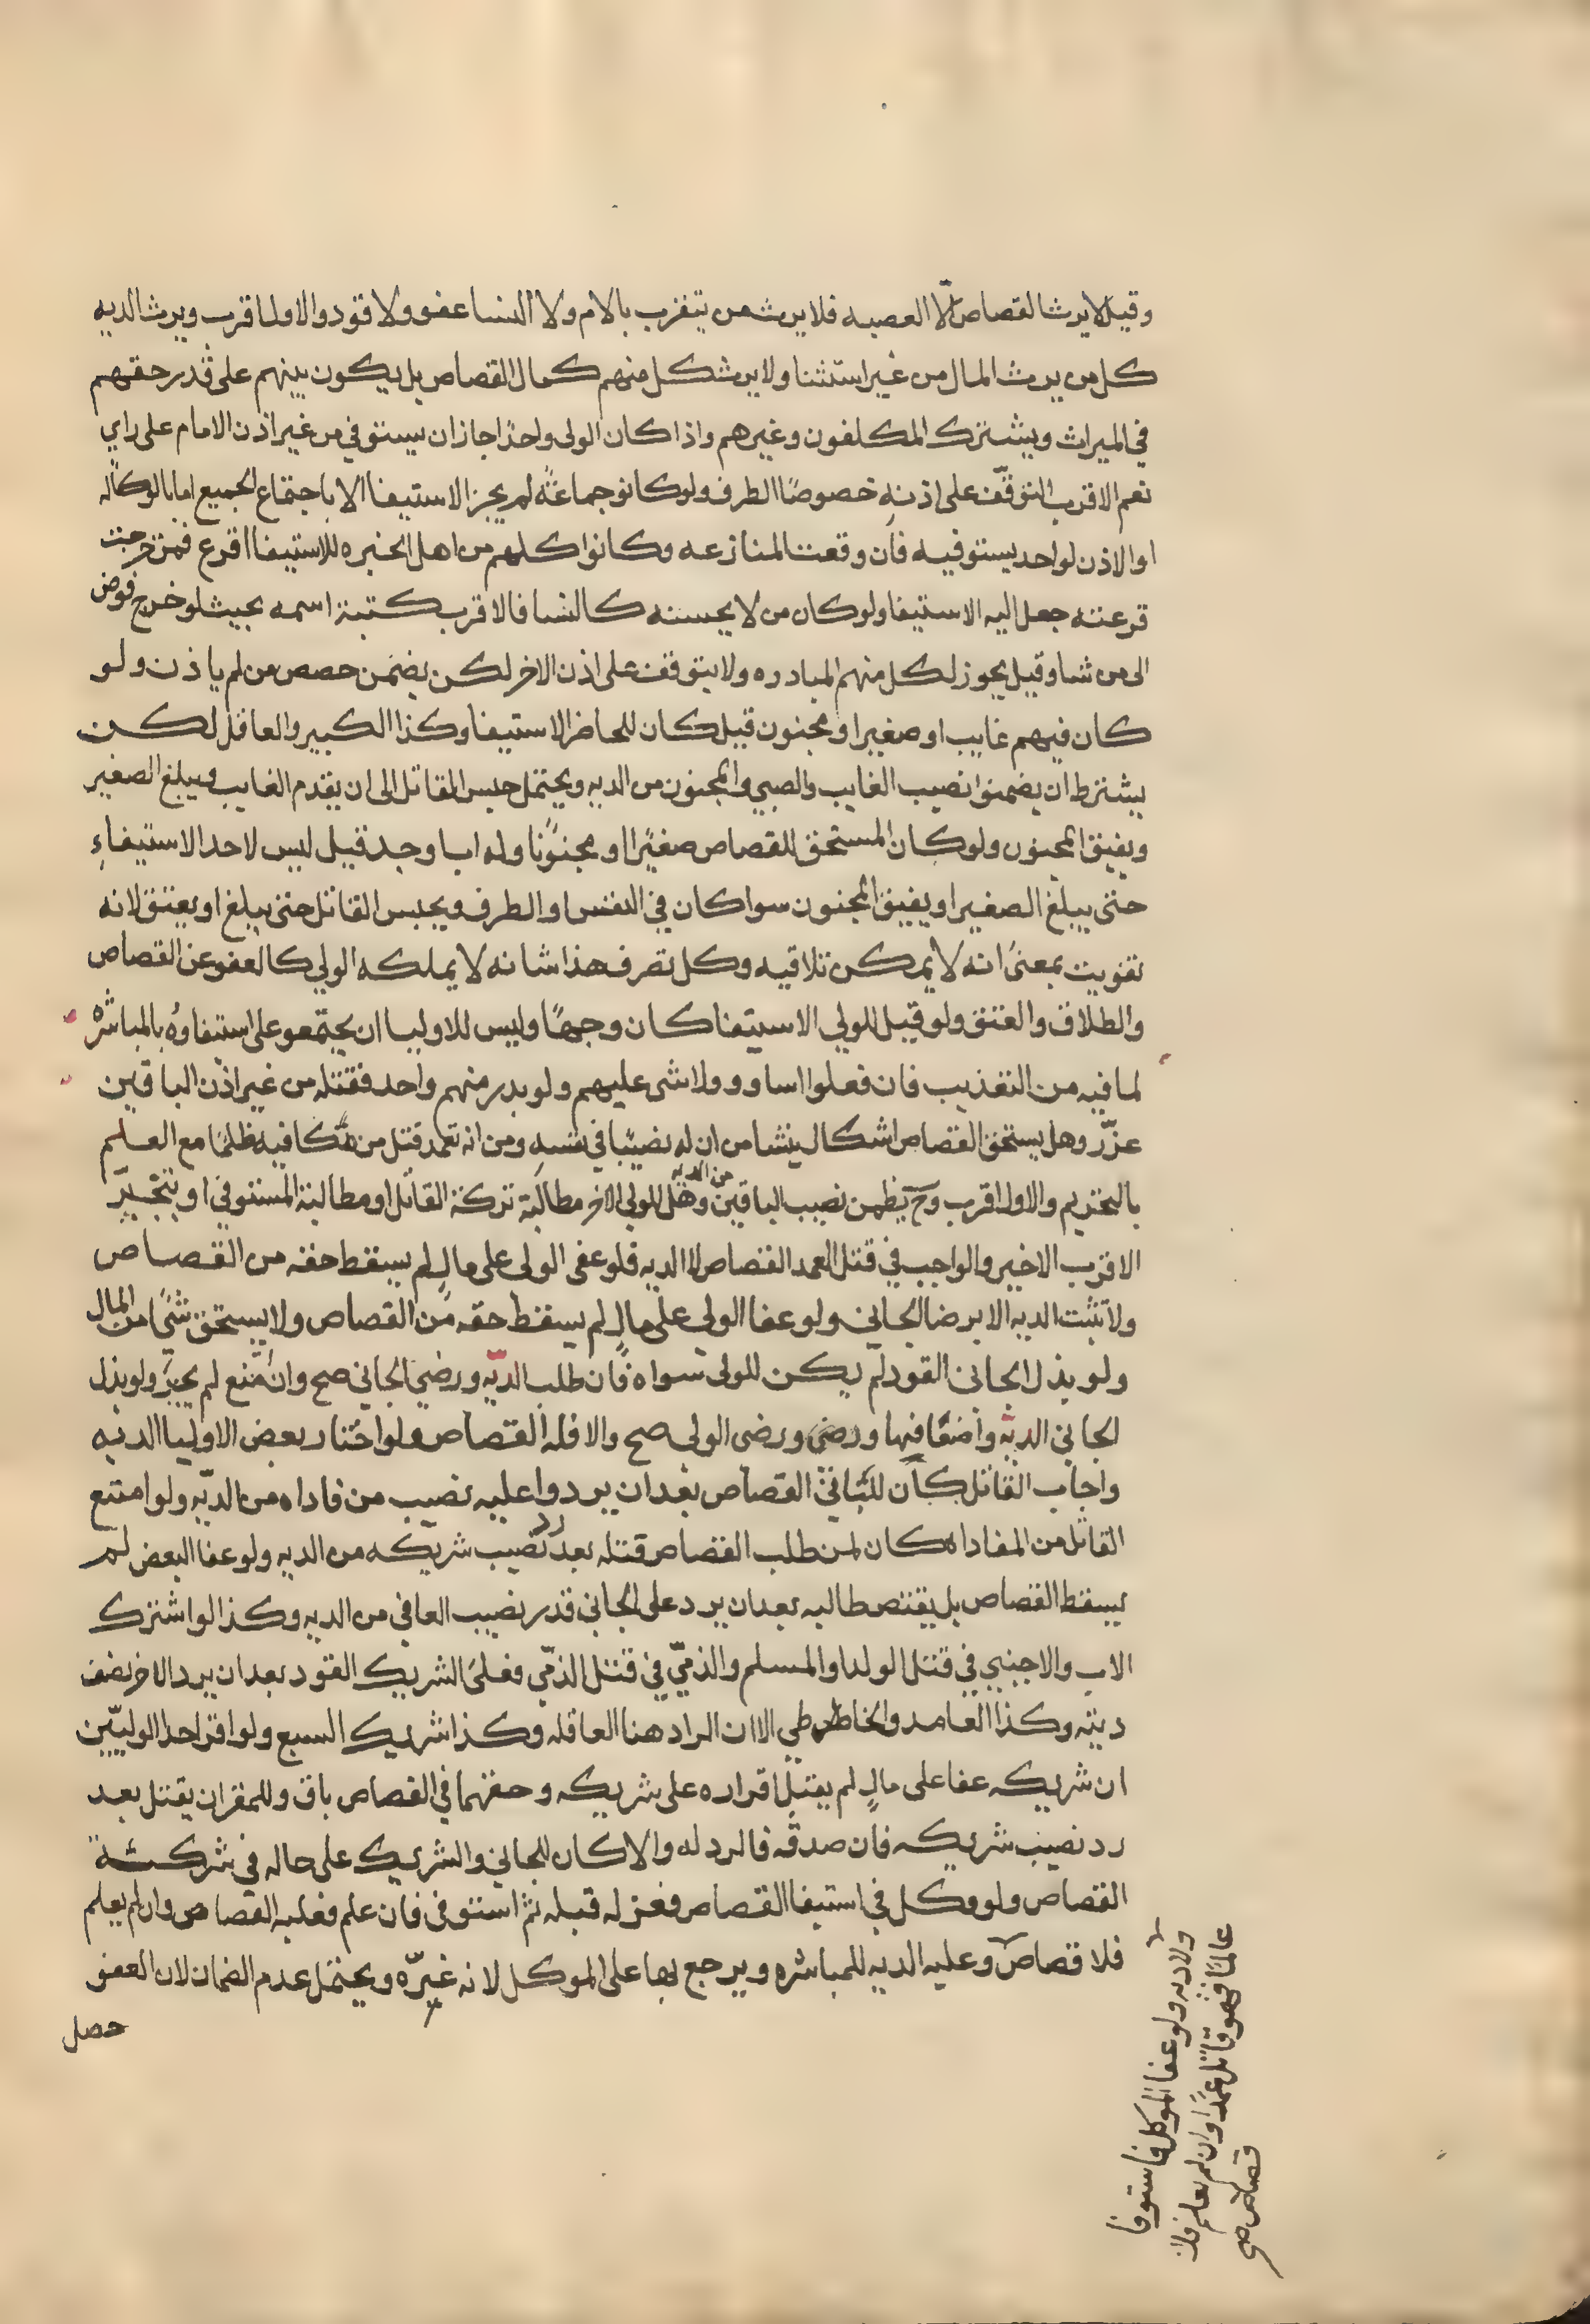 وقيل لا يرث القصاص الّا العصبه فلا يرث من يتقرب بالام ولا النسا عفو ولا قود والاول اقرب ويرث الديه
كل من يرث المال من غير استثنا ولا يرث كل منهم كمال القصاص بل يكون بينهم على قدر حقهم
في الميراث ويشترك المكلفون وغيرهم واذا كان الولى واحدًا جاز ان يستوفي من غير اذن الامام على راي
نعم الاقرب التوقّف على اذنه خصوصًا الطرف ولو كانو جماعةً لم يجز الاستيفا الا باجتماع الجميع اما بالوكاله
او الاذن لواحد يستوفيه فان وقعت المنازعه وكانوا كلهم من اهل الخبره للاستيفا اقرع فمن خرجت
قرعته جعل اليه الاستيفا ولو كان من لا يحسنه كالنسا فالاقرب كتبة اسمه بحيث لو خرج فوض
الى من شا وقيل يجوز لكل منهم المبادره ولا يتوقف على اذن الاخر لكن يضمن حصص من لم ياذن ولو
كان فيهم غايب او صغير او مجنون قيل كان للحاضر الاستيفا وكذا الكبير والعاقل لكن
يشترط ان يضمنوا نصيب الغايب والصبي والمجنون من الديه ويحتمل حبس القاتل الى ان يقدم الغايب ويبلغ الصغير
ويفيق المجنون ولو كان المستحق للقصاص صغيرًا او مجنونًا وله اب او جد قيل ليس لاحد الاستيفاءِ
حتى يبلغ الصغير او يفيق المجنون سوا كان في النفس او الطرف ويحبس القاتل حتى يبلغ او يعتق لانه
تفويت بمعنى انه لا يمكن تلافيه وكل تصرف هذا شانه لا يملكه الولي كالعفو عن القصاص
والطلاق والعتق ولو قيل للولي الاستيفا كان وجهًا وليس للاوليا ان يجتمعو على استيفاوه بالمباشره
لما فيه من التعذيب فان فعلوا اساوو ولا شى عليهم ولو بدر منهم واحد فقتله من غير اذن الباقين
عزّر وهل يستحق القصاص اشكال ينشا من ان له نصيبًا في نفسه ومن انه تعمد قتل من يكافيه ظلمًا مع العلم
بالتحريم والاول اقرب وحَ يضمن نصيب الباقين من الديه وهل للولي الاخر مطالبة تركة القاتل او مطالبة المستوفي او يتخيّر
الاقرب الاخير والواجب في قتل العمد القصاص لا الديه فلو عفى الولى على مالٍ لم يسقط حقه من القصاص
ولا تثبت الديه الا برضا الجاني ولو عفا الولي على مالٍ لم يسقط حقه من القصاص ولا يستحق شئًا من المال
ولو بذل الجاني القود لم يكن للولى سواه فان طلب الديّه ورضي الجاني صح وان امتنع لم يجبر ولو بذل
الجاني الديّه واضعافها ورضي ورضى الولي صح والا فله القصاص ولو اختار بعض الاوليا الديه
واجاب القاتل كان للباقي القصاص بعد ان يردوا عليه نصيب من فاداه من الديّه ولو امتنع
القاتل من المفاداه كان لمن طلب القصاص قتله بعد رد نصيب شريكه من الديه ولو عفا البعض لم
يسقط القصاص بل يقتص طالبه بعد ان يرد على الجاني قدر نصيب العافي من الديه وكذا لو اشترك
الاب والاجنبي في قتل الولد او المسلم والذميّ في قتل الذمّي فعلى الشريك القود بعد ان يرد الاخر نصف
ديته وكذا العامد والخاطي الا ان الراد هنا العاقله وكذا شريك السبع ولو اقر احد الوليّين
ان شريكه عفا على مالٍ لم يقبل اقراره على شريكه وحقهما في القصاص باق وللمقر ان يقتل بعد
رد نصيب شريكه فان صدقه فالرد له والا كان للجاني والشريك على حاله في شركة
القصاص ولو وكل في استيفا القصاص فعزله قبله ثم استوفى فان علم فعليه القصاص وان لم يعلم
فلا قصاص وعليه الديه للمباشره ويرجع بها على الموكل لانه غيرّه ويحتمل عدم الضمان لان العفو
حصل
ولا ديه ولو عفا الموكل فاستوفا
عالمًا فهو قاتل عمدًا وان لم يعلم فلا
قصاص صح